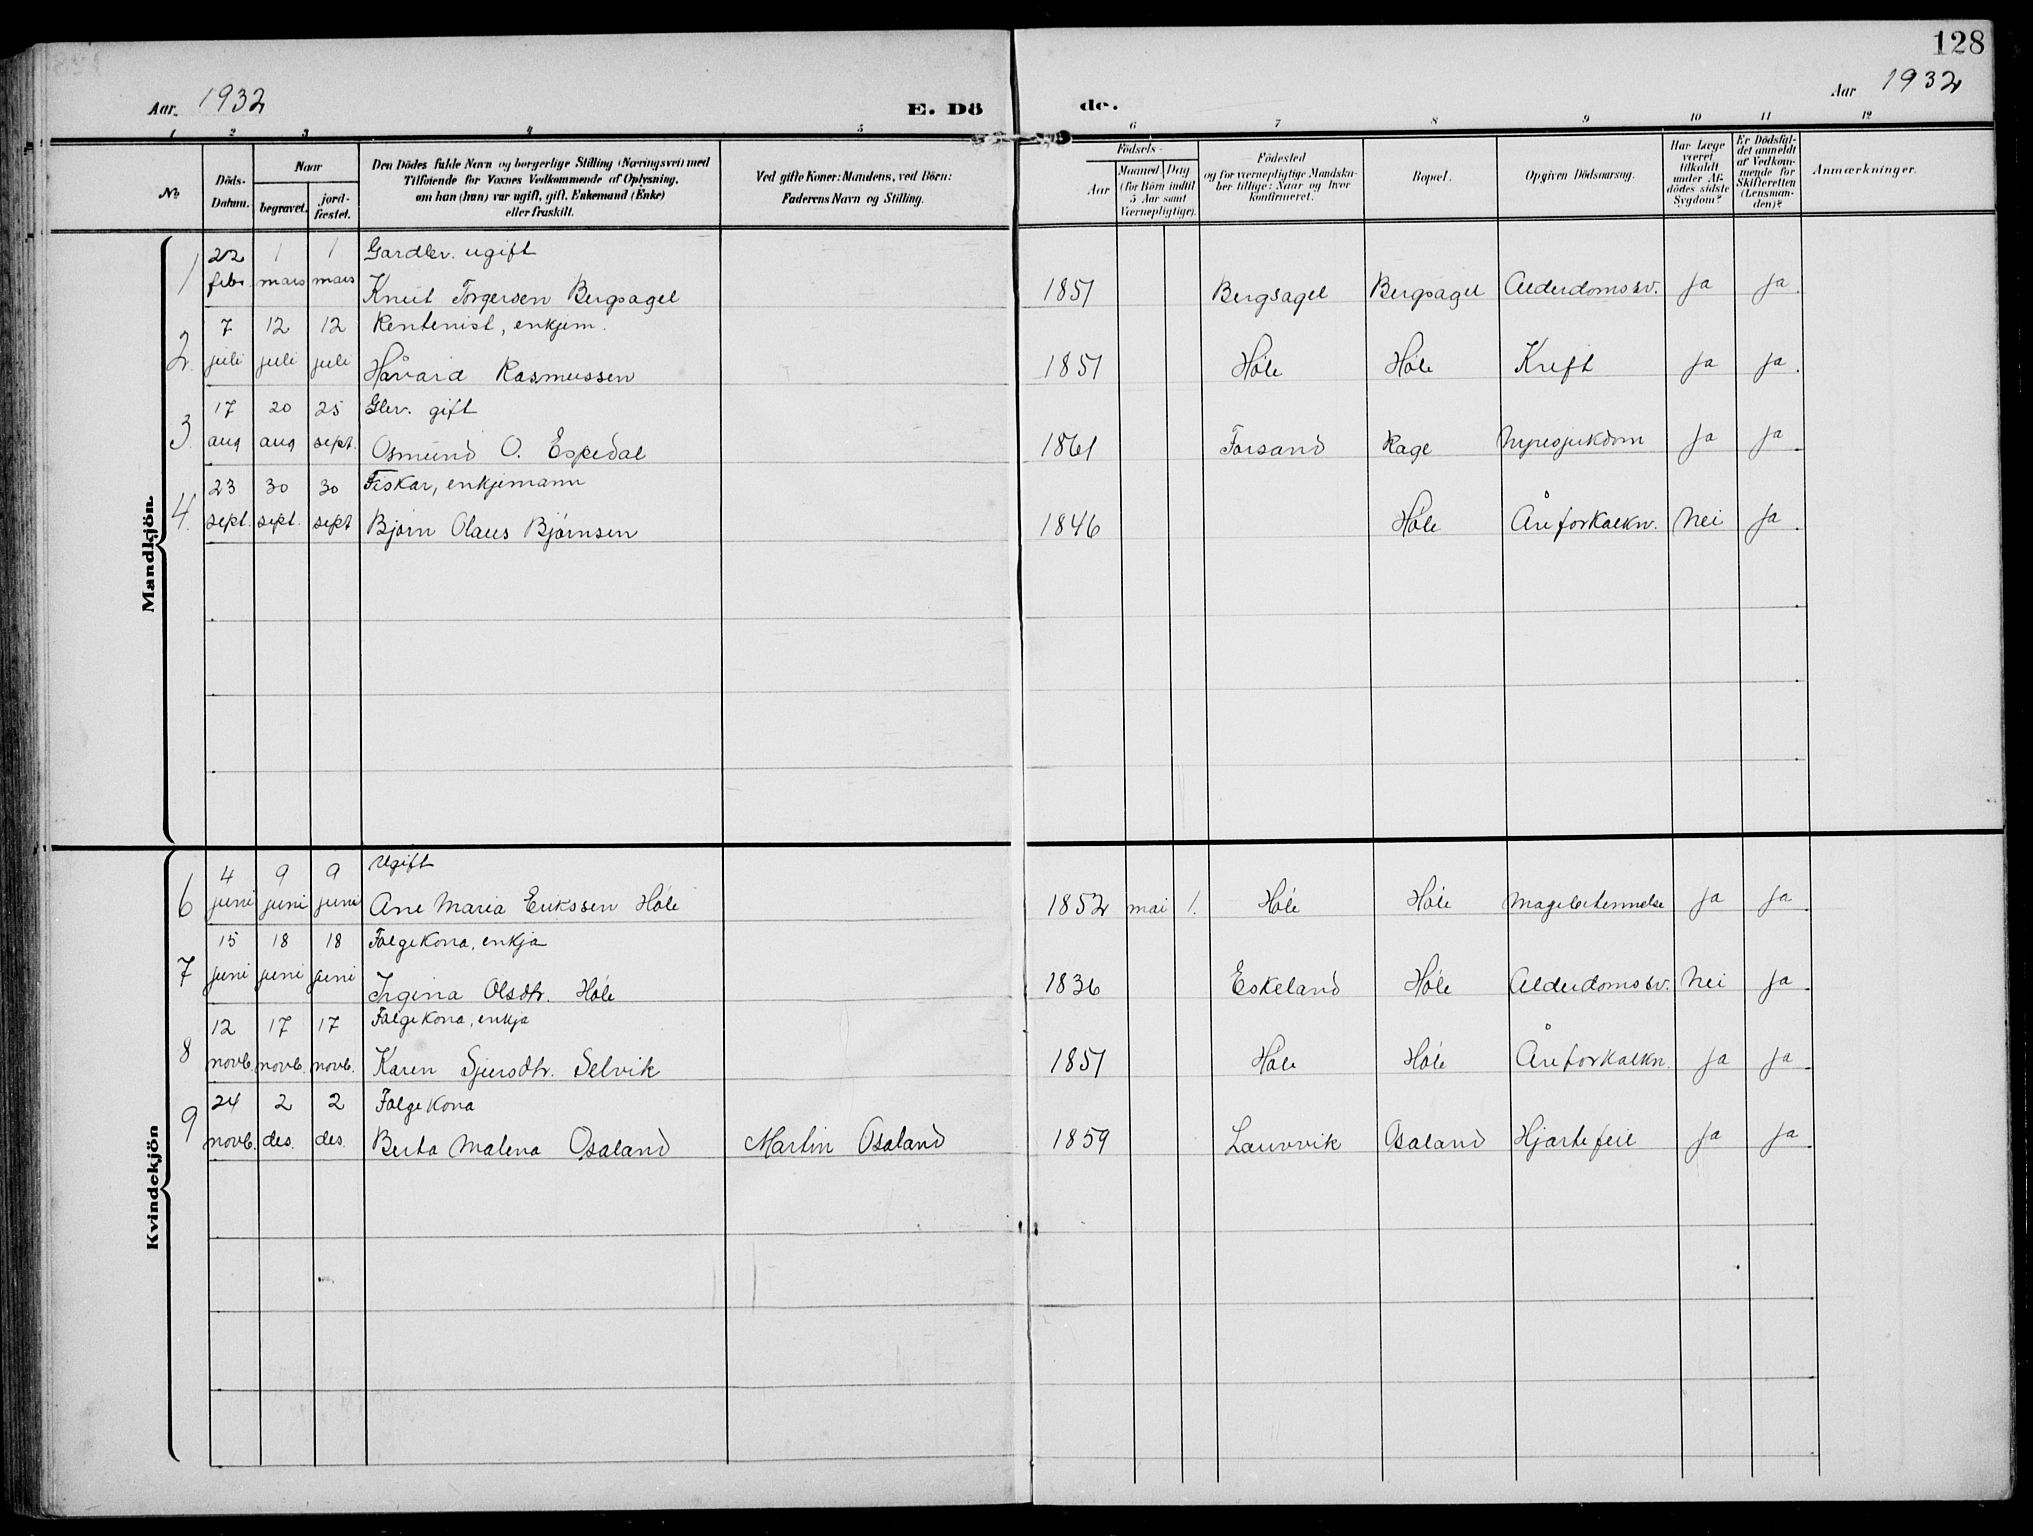 128
Aar. 1932
E. Dö de.
Aar 1932
1 2 3 4 5 6 7 8 9 10 11 12
No.
Döds-Datum.
Naar
begravet.
jord-fæstet.
Den Dödes fulde Navn og borgerlige Stilling (Næringsvei) med
Tilföiende for Voxnes Vedkommende af Oplysning,
om han (hun) var ugift, gift, Enkemand (Enke)
eller fraskilt.
Ved gifte Koner: Mandens, ved Börn:
Faderens Navn og Stilling.
Födsels-
Aar
Maaned Dag
(for Börn indtil
5 Aar samt
Værnepligtige).
Födested
og for værnepligtige Mandska-
ber tillige: Naar og hvor
konfirmeret.
Bopæl.
Opgiven Dödsaarsag.
Har Læge
været
tilkaldt
under Af-
dödes sidste
Sygdom?
Er Dödsfal-
det anmeldt
af Vedkom-
mende for
Skifteretten
(Lensman-
den)?
Anmærkninger.
Mandkjön.
1 22 febr. 1 mars 1 mars Gardbr. ugift
Knut Torgersen Bergsagel 1851 Bergsagel Bergsagel Alderdomssv. Ja Ja.
2. 7 juli 12 juli 12 juli Rentenist, enkjem.
Håvard Rasmussen 1851 Høle Høle Kreft Ja Ja.
3. 17 aug 20 aug 25 sept. Gbr. gift
Osmund O. Espedal 1861 Forsand Rage Nyresjukdom Ja Ja
4. 23 sept. 30 sept. 30 sept Fiskar, enkjemann
Bjørn Olaus Bjørnsen 1846 Høle Åreforkalkn. Nei Ja
Kvindekjön
6 4 juni 9 juni 9 juni Ugift
Ane Maria Erikssen Høle 1852 mai 1. Høle Høle Magebetennelse Ja Ja
7 15 juni 18 juni 18 juni Følgekona, enkja
Ingina Olsdtr. Høle 1836 Eskeland Høle Alderdomssv. Nei Ja
8 12 novb. 17 novb. 17 novb. Følgekona, enkja
Karen Sjursdtr. Selvik 1851 Høle Høle Åreforkalkn. Ja Ja
9 24 novb. 2 des. 2 des. Følgekona
Berta Malena Osaland Martin Osaland 1859 Lauvvik Osaland Hjartefeil Ja Ja